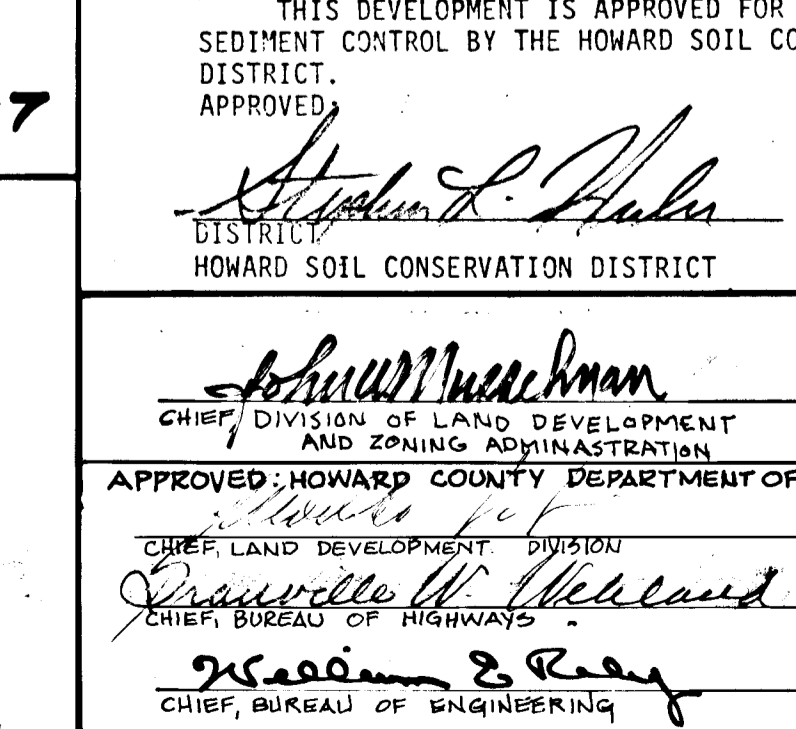 7
THIS DEVELOPMENT IS APPROVED FOR
SEDIMENT CONTROL BY THE HOWARD SOIL CO
DISTRICT.
APPROVED:
Stephen L.
DISTRICT
HOWARD SOIL CONSERVATION DISTRICT
John W Musselman
CHIEF, DIVISION OF LAND DEVELOPMENT
AND ZONING ADMINASTRATION
APPROVED: HOWARD COUNTY DEPARTMENT OF
CHIEF, LAND DEVELOPMENT DIVISION
Granville W. Wehland
CHIEF, BUREAU OF HIGHWAYS
William E Riley
CHIEF, BUREAU OF ENGINEERING